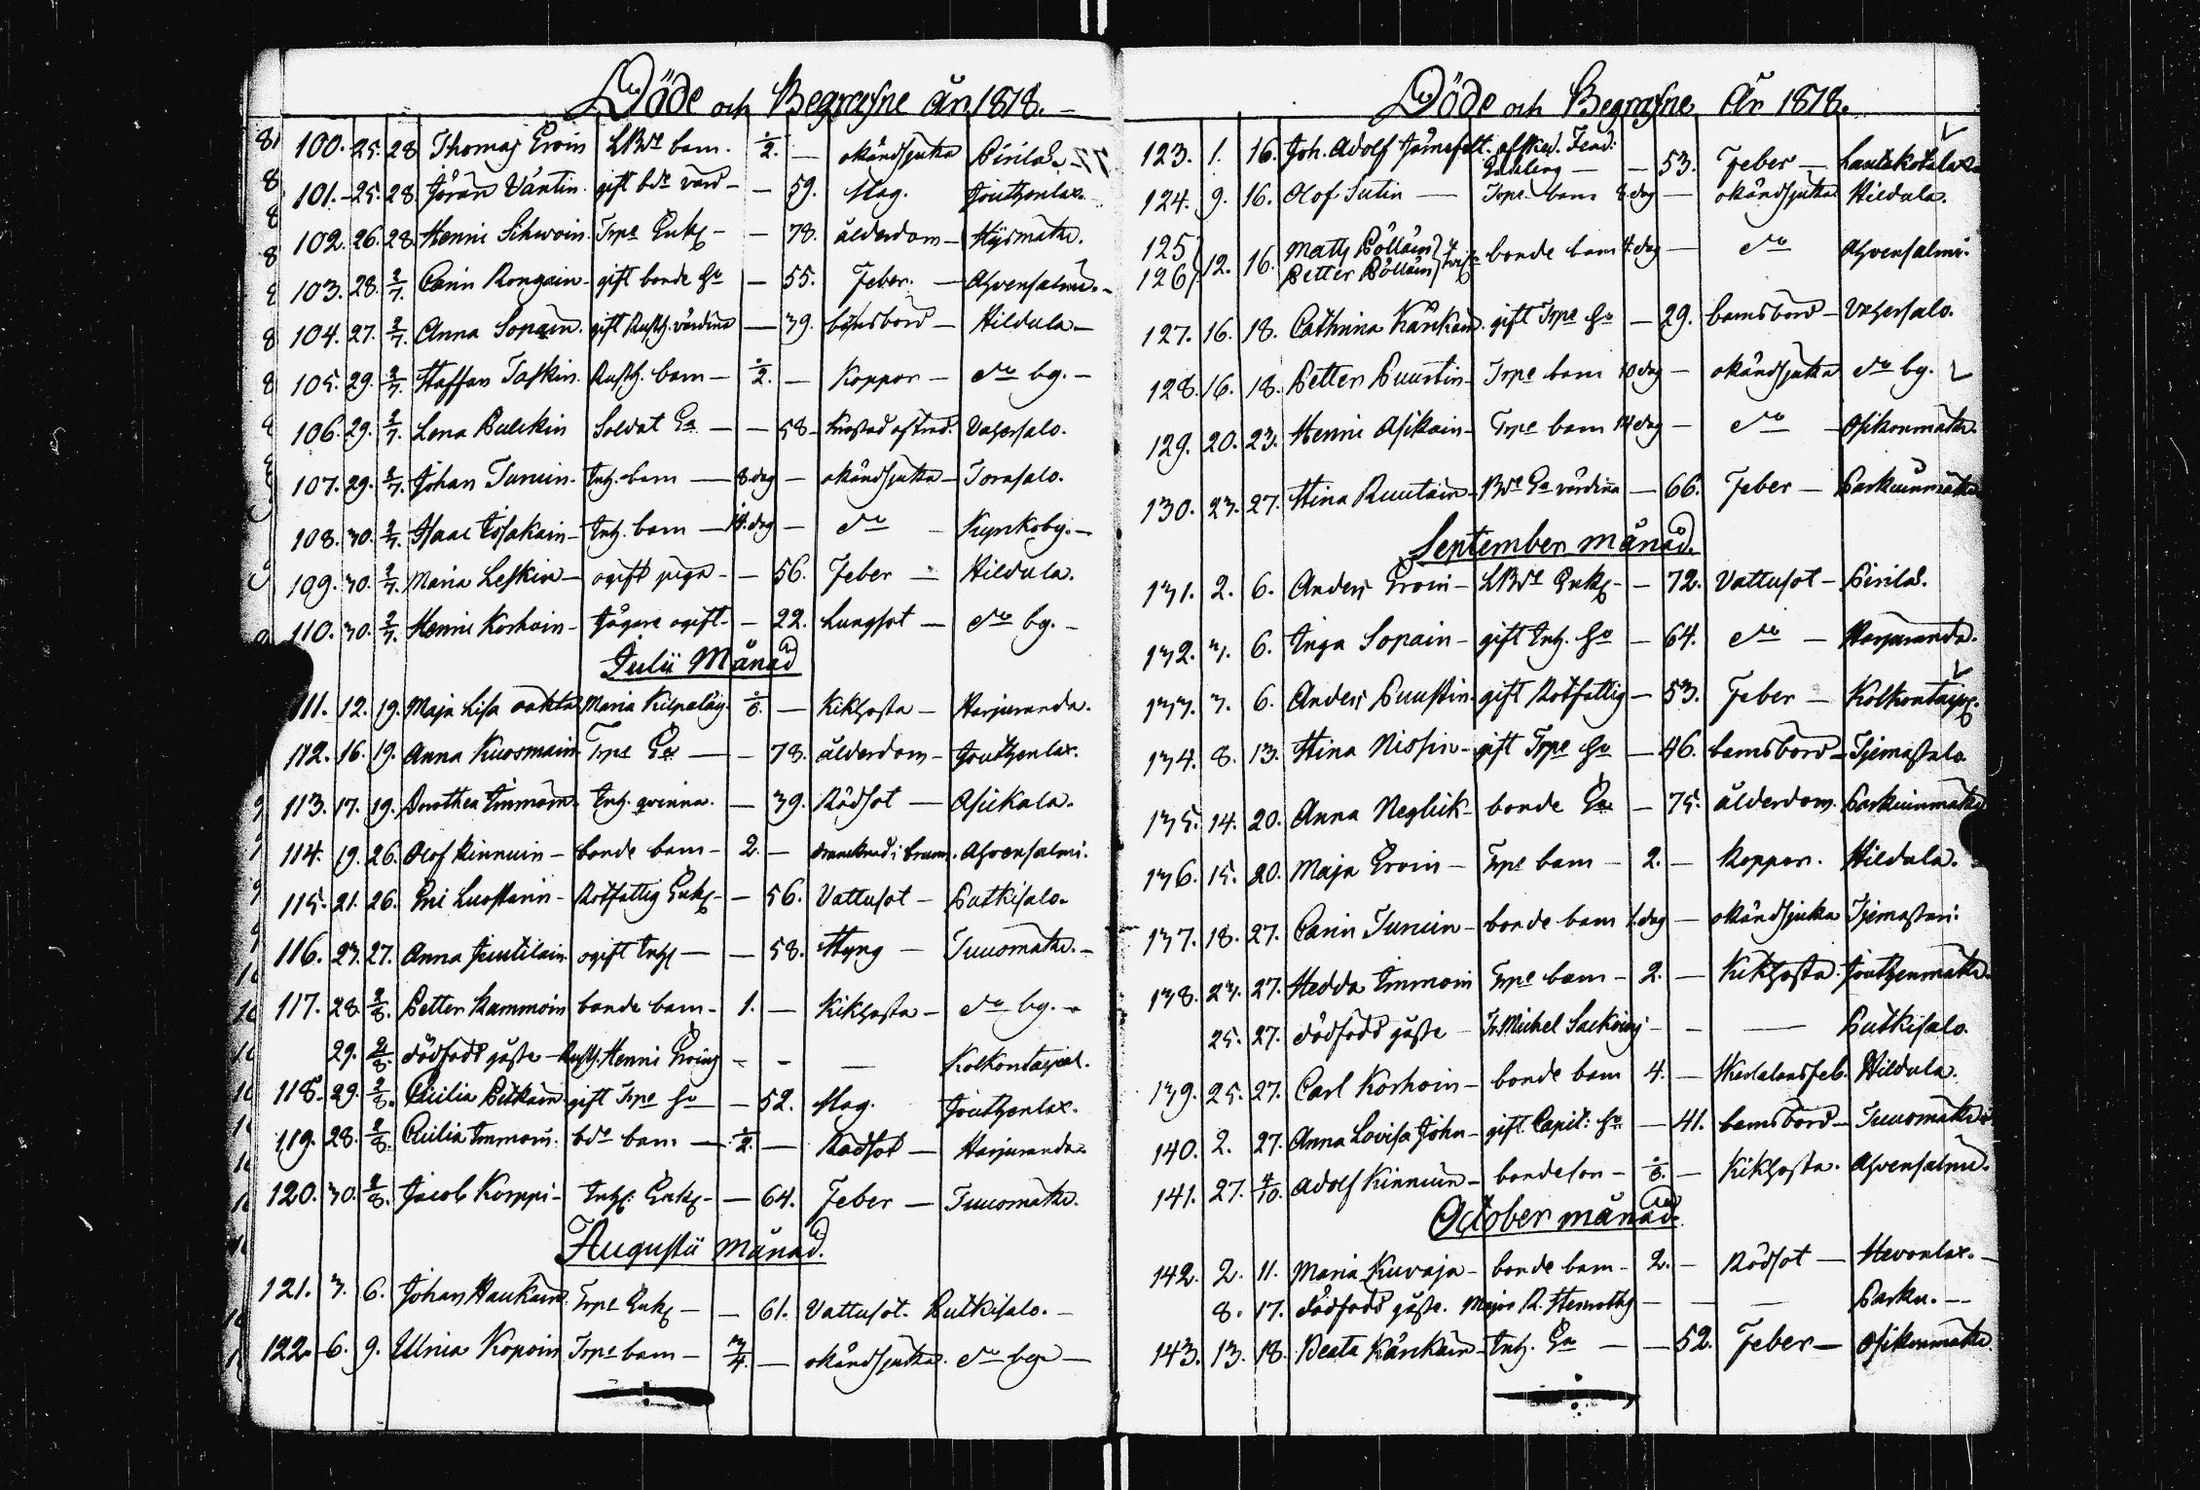 Döde och Begrafne År 1818.
100. 25. 28 Thomas Eroin LBde barn. 1/2. — okänd sjukd. Pirilä
101. 25. 28. Jöran Väntin. gift bde värd — 59. Slag. Jouhenlax.
102. 26. 28. Henric Sihvoin. Torpe Enkl. — 78. ålderdom — Hyrmäki.
103. 28. 2/7. Carin Rongain gift bonde hu — 55. Feber. — Ahvensalmi.
104. 27. 2/7. Anna Sopain. gift Rusth. värdinna — 39. barnsbörd — Hildula —
105. 29. 2/7. Staffan Taskin. Rusth. barn — 1/2. — Koppor — do by. —
106. 29. 2/7. Lena Pulckin Soldat Ea — 58. Vahersalo.
107. 29. 2/7. Johan Turuin. Inh. barn — 8 dag — okänd sjukd. — Torasalo.
108. 30. 2/7. Isaac Issakain — Inh. barn — 14. dag — do — by. —
109. 30. 2/7. Maria Leskin — ogift piga — 56. Feber — Hildula.
110. 30. 2/7. Henric Korhoin — Jägare ogift — 22. Lungsot — do by. —
Julii Månad
111. 12. 19. Maja Lisa oäkta Maria 1/6. — Kikhosta — Harjuranda.
112. 16. 19. Anna Kuosmain Torpe Ea — 78. ålderdom — Jouhenlax.
113. 17. 19. Dorothea Immoin Inh. qvinna. — 39. Rödsot — Asickala.
114. 19. 26. Olof Kinnuin — bonde barn — 2. — drunknad i brunn. Ahvensalmi.
115. 21. 26. Eric Luostarin — Rotfattig Enkl. — 56. Vattusot — Putkisalo.
116. 23. 27. Anna Juutilain ogift Inh. — 58. Styng — Tuusmäki. —
117. 28. 2/8. Petter Rammoin bonde barn — 1. — Kikhosta — do by. —
29. 2/8. dödfödt gosse — Rusth. Henric Eroins — — — Kolkontaipal.
118. 29. 2/8. Cecilia Pitkäin gift Torpe hu — 52. Slag. Jouhenlax.
119. 28. 2/8. Cecilia Immoin. bde barn — 1/2. — Rödsot — Harjuranda.
120. 30. 2/8. Jacob Korppi — Inh. Enkl. — 64. Feber — Tuusmäki.
Augustii månad.
121. 3. 6. Johan Haukain Torpe Enkl. — 61. Vattusot. Putkisalo. —
122. 6. 9. Ulrica Kopoin Torpe barn — 3/4. — okänd sjukd. do by —
Döde och Begrafne År 1818.
123. 1. 16. Joh. Adolf Järnefelt. afsked. — 53. Feber — Lautakotalax.
124. 9. 16. Olof Sutin — Torpe barn 8 dag — okänd sjukd. Hildula.
125 Mats Pöllain
126 12. 16. Petter Pöllain bonde barn 4 dag — do Ahvensalmi.
127. 16. 18. Cathrina Känkäin. gift Torpe hu — 29. barnsbörd — Vahersalo.
128. 16. 18. Petter Puustin — Torpe barn 10 dag — okänd sjukd. do by.
129. 20. 23. Henric Asikain — Torpe barn 14 dag — do — Osikonmäki.
130. 23. 27. Stina Ruutain — Bde Ea värdinna — 66. Feber — Parkuinmäki
September månad.
131. 2. 6. Anders Eroin — LBde Enkl. — 72. Vattusot — Pirilä.
132. 3. 6. Inga Sopain — gift Inh. hu — 64. do — Harjuranda.
133. 3. 6. Anders Puustin — gift Rotfattig — 53. Feber — Kolkontaip.
134. 8. 13. Stina Nissin — gift Torpe hu — 46. barnsbörd — Tjemassalo
135. 14. 20. Anna Neglick — bonde Ea — 75. ålderdom. Parkuinmäki
136. 15. 20. Maja Eroin — Torpe barn — 2. — Koppor. Hildula.
137. 18. 27. Carin Turuin — bonde barn 1. dag — okänd sjukd
138. 23. 27. Hedda Immoin Torpe barn — 2. — Kikhosta. Jouhenmäki.
25. 27. dödfödt gosse — Michel — — Putkisalo.
139. 25. 27. Carl Korhoin — bonde barn 4. — Skarlakansfeb. Hildula.
140. 2. 27. Anna Lovisa John — gift Capit: hu — 41. barnsbörd — Tuusmäki
141. 27. 4/10. Adolf Kinnuin — bondeson — 1/6. — Kikhosta. Ahvensalmi.
October månad.
142. 2. 11. Maria Kuvaja — bonde barn — 2. — Rödsot — Hevonlax. —
8. 17. dödfödt gosse. Major R. — — Parku. —
143. 13. 18. Beata Känkäin — Inh. Ea — 52. Feber — Osikonmäki